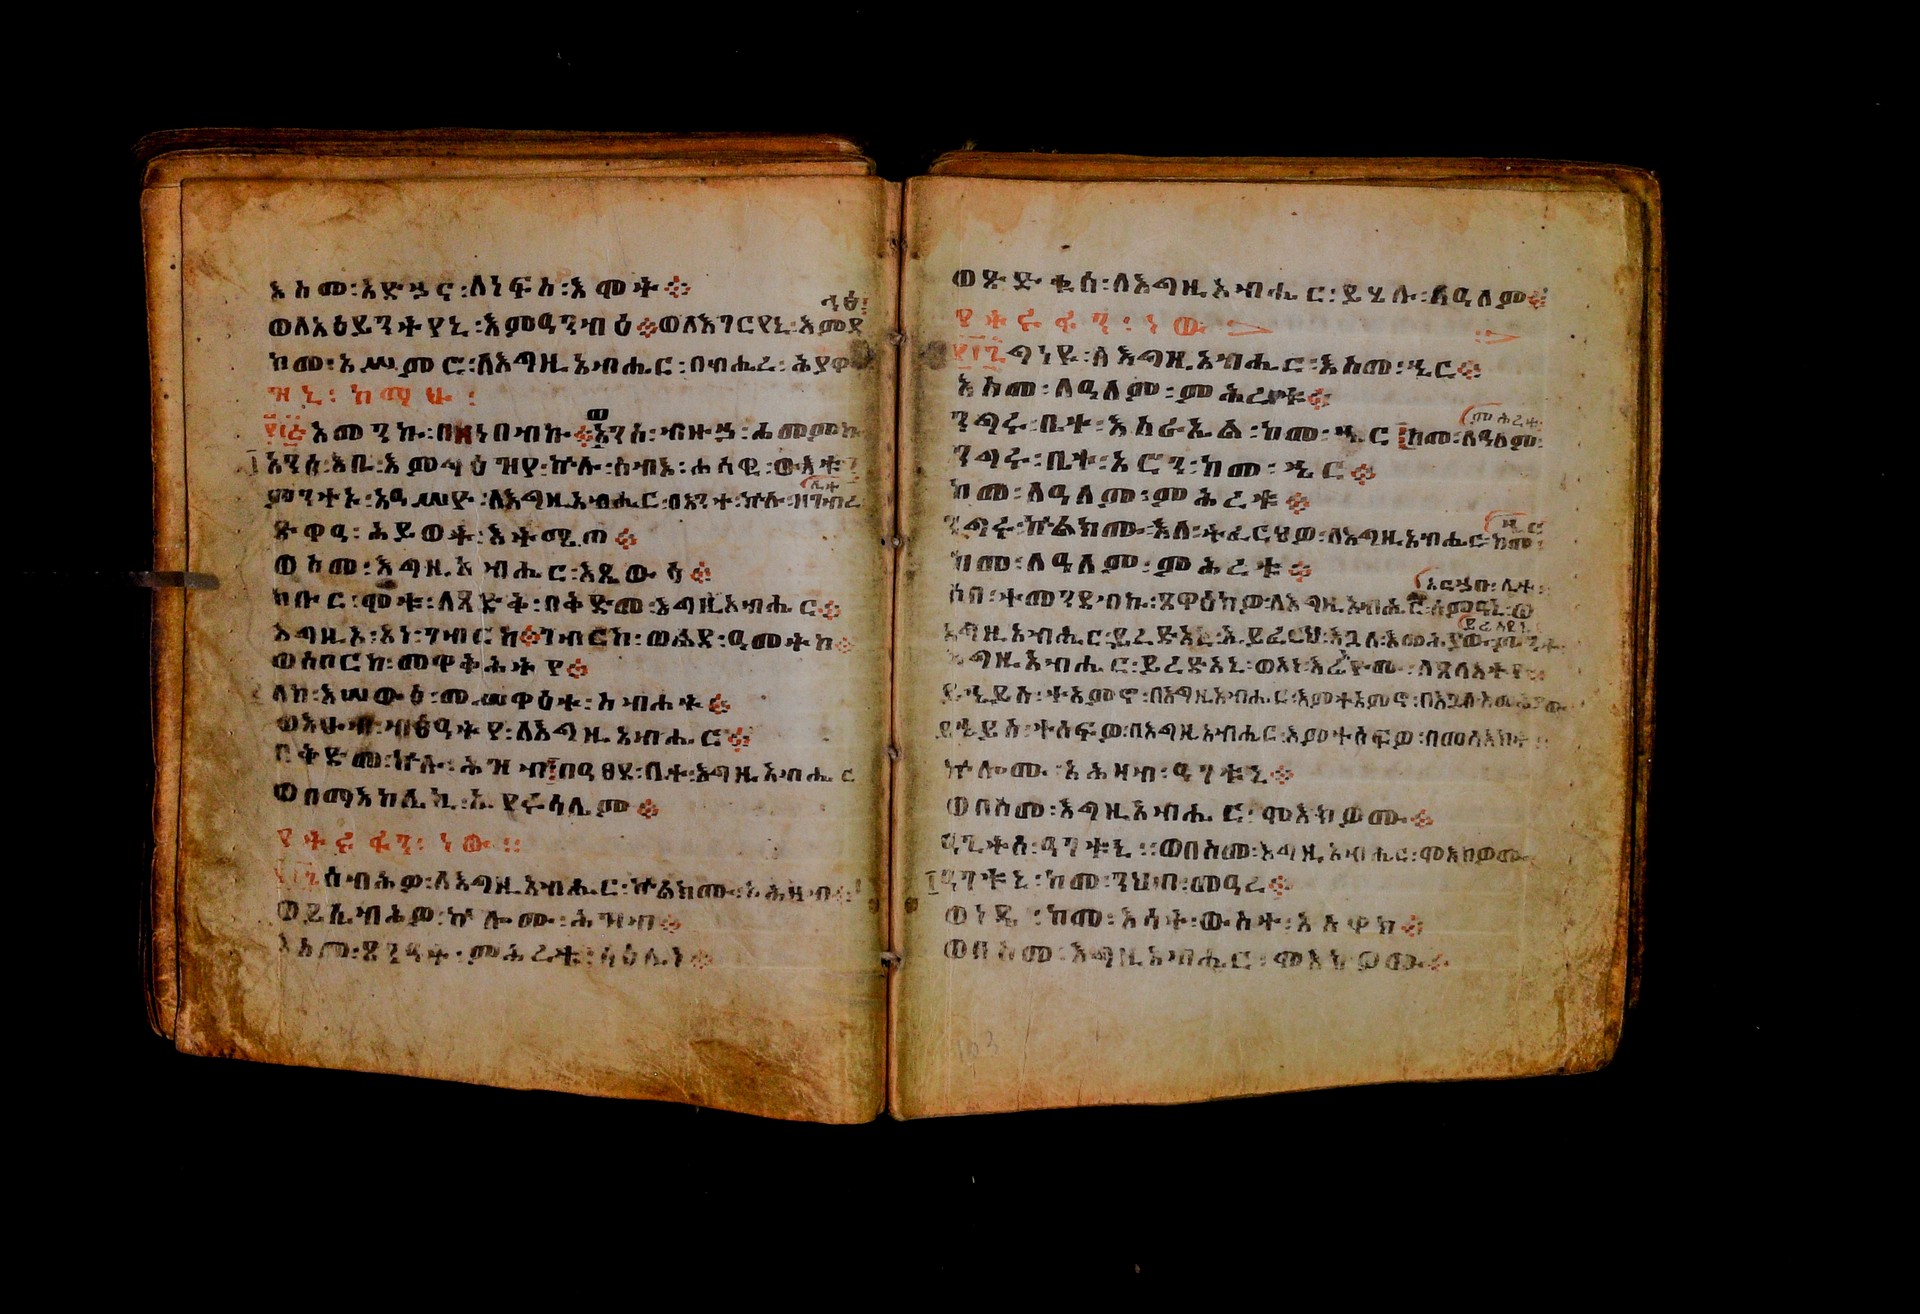 እስመ ፡ አድኀና ፡ ለነፍስ ፡ እሞት ።
ወለአዕይንትየኒ ፡ እምዓንብዕ ። ወለእገርየኒ ፡ እምዳ
ኅፅ ፡
ከመ ፡ አሠምሮ ፡ ለእግዚአብሔር ፡ በብሔረ ፡ ሕያዋ
ዝኒ ፡ ከማሁ ፡
አመንኩ ፡ በዘነበብኩ ። ወአንሰ ፡ ብዙኀ ፡ ሐመምኩ
አንሰ ፡ እቤ ፡ እምግዕዝየ ፡ ኵሉ ፡ ሰብእ ፡ ሐሳዊ ፡ ውእቱ
ምንተኑ ፡ አዓሥዮ ፡ ለእግዚአብሔር ፡ በእንተ ፡ ኵሉ ፡ ዘገብረ
ሊተ
ጽዋዓ ፡ ሕይወት ፡ እትሜጦ ።
ወስመ ፡ እግዚአብሔር ፡ እጼውዕ ።
ክቡር ፡ ሞቱ ፡ ለጻድቅ ፡ በቅድመ ፡ እግዚአብሔር ።
እግዚኦ ፡ አነ ፡ ገብርከ ። ገብርከ ፡ ወልደ ፡ ዓመትከ ።
ወሰበርከ ፡ መዋቅሕትየ ።
ለከ ፡ እሠውዕ ፡ መሥዋዕተ ፡ ስብሐት ።
ወእሁብ ፡ ብፅዓትየ ፡ ለእግዚአብሔር ።
በቅድመ ፡ ኵሉ ፡ ሕዝብ በዓፀደ ፡ ቤተ ፡ እግዚአብሔር
ወበማእከሌኪ ፡ ኢየሩሳሌም ።
የተረፋን ፡ ነው ።
ሰብሕዎ ፡ ለእግዚአብሔር ፡ ኵልክሙ ፡ አሕዛብ ።
ወይሴብሕዎ ፡ ኵሎሙ ፡ ሕዝብ ።
እስመ ፡ ጸንዓት ፡ ምሕረቱ ፡ ላዕሌነ ።
ወጽድቁሰ ፡ ለእግዚአብሔር ፡ ይሄሉ ፡ ለዓለም ።
የተረፋን ፡ ነው
ግነዩ ፡ ለእግዚአብሔር ፡ እስመ ፡ ኄር ።
እስመ ፡ ለዓለም ፡ ምሕረቱ ።
ንግሩ ፡ ቤተ ፡ እስራኤል ፡ ከመ ፡ ኄር ከመ ፡ ለዓለም ፡
ምሕረቱ
ንግሩ ፡ ቤተ ፡ አሮን ፡ ከመ ፡ ኄር ።
ከመ ፡ ለዓለም ፡ ምሕረቱ ።
ንግሩ ፡ ኵልክሙ ፡ እለ ፡ ትፈርህዎ ፡ ለእግዚአብሔር ፡ ከመ ፡
ኄር
ከመ ፡ ለዓለም ፡ ምሕረቱ ።
ሶበ ፡ ተመንደብኩ ፡ ጸዋዕክዎ ፡ ለእግዚአብሔር ፡ ሰምዓኒ ፡ ወ
አርኀበ ፡ ሊተ ፡
እግዚአብሔር ፡ ይረድአኒ ፡ ኢይፈርህ ፡ እጓለ ፡ እመሕያው ፡ ምንተ
ይሬስየኒ
እግዚአብሔር ፡ ይረድአኒ ፡ ወአነ ፡ እሬእዮሙ ፡ ለጸላእትየ ።
ይኄይስ ፡ ተአምኖ ፡ በእግዚአብሔር ፡ እምተአምኖ ፡ በእጓለ ፡ እመሕያው
ይኄይስ ፡ ተሰፍዎ ፡ በእግዚአብሔር ፡ እምተሰፍዎ ፡ በመላእክት ፡
ኵሎሙ ፡ አሕዛብ ፡ ዓገቱኒ ።
ወበስመ ፡ እግዚአብሔር ፡ ሞእክዎሙ ።
ዓጊተሰ ፡ ዓገቱኒ ። ወበስመ ፡ እግዚአብሔር ፡ ሞእክዎሙ
ዓገቱኒ ፡ ከመ ፡ ንህብ ፡ መዓረ ።
ወነዱ ፡ ከመ ፡ እሳት ፡ ውስተ ፡ አስዋክ ።
ወበስመ ፡ እግዚአብሔር ፡ ሞእክዎሙ ።
103